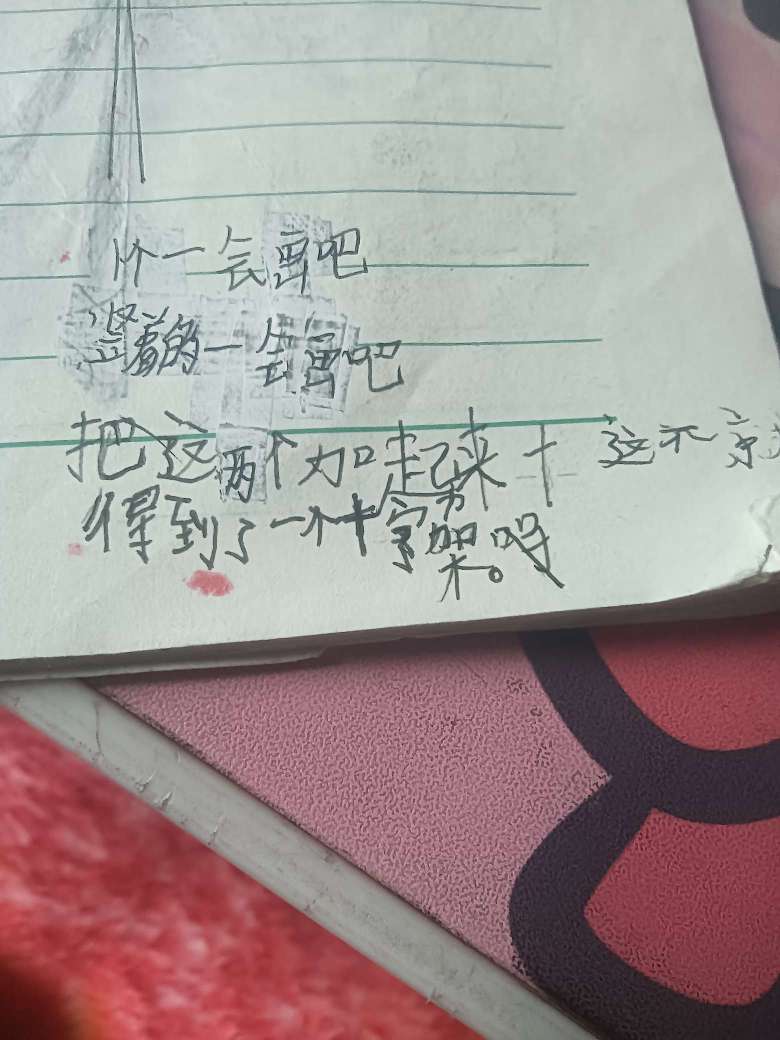 个一会画吧
竖着的一会画吧
把这两个加起来十 这不京
得到了一个十字架。吗